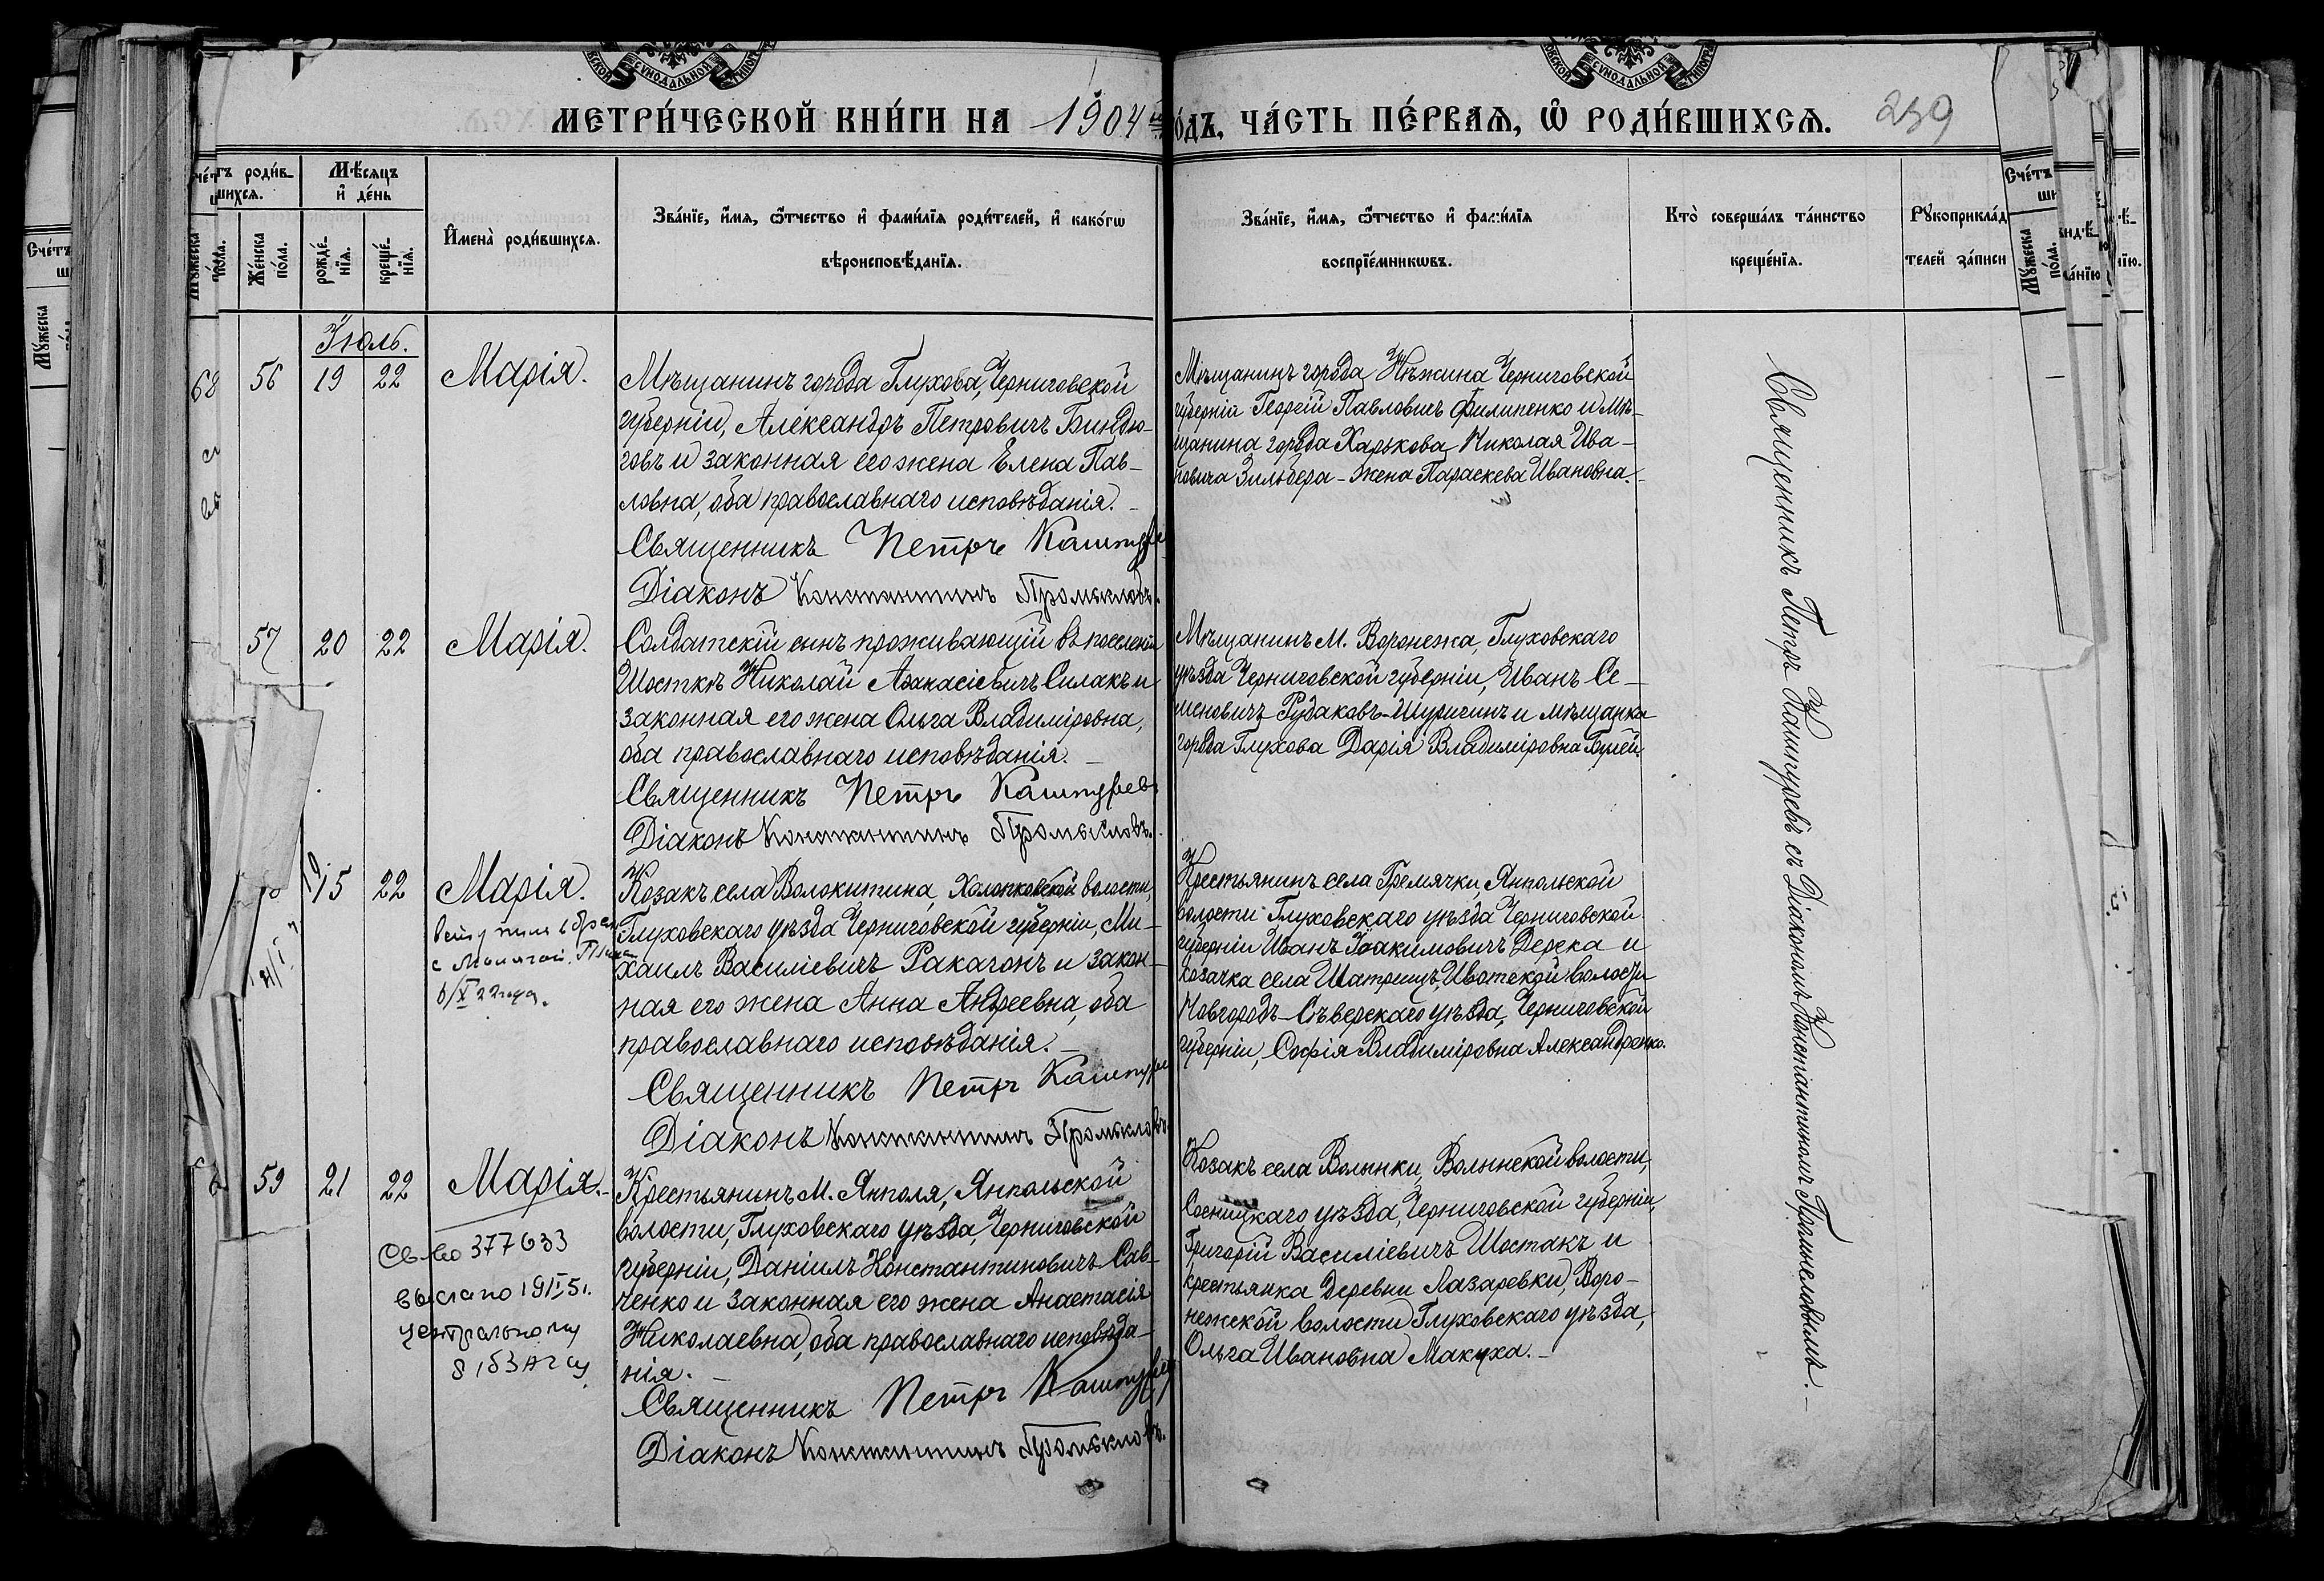 МЕТРИ́ЧЕСКОЙ КНИ́ГИ НА 1904 ГО́ДЪ, ЧА́СТЬ ПЕ́РВАЯ, Ѡ҆ РОДИ́ВШИХСЯ.
239
Мѣ́сяцъ и҆ де́нь
Же́нска по́ла.
рожде́нїя.
креще́нїя.
И҆мена̀ роди́вшихся.
Зва́нїе, и҆́мя, ѻ҆́тчество и҆ фами́лїя роди́телей, и҆ како́гѡ
вѣроисповѣ́данїя.
Зва́нїе, и҆́мя, ѻ҆́тчество и҆ фами́лїя
воспрїе́мникѡвъ.
Кто̀ соверша́лъ та́инство
креще́нїя.
Рꙋкоприкла́д
телей за́писи
Іюль.
56 19 22 Марія.
Мѣщанинъ города Глухова, Черниговской
губерніи, Александръ Петровичъ Биндю-
говъ и законная его жена Елена Пав-
ловна, оба православнаго исповѣданія.
Священникъ Петръ
Діаконъ Константинъ
Мѣщанинъ города Нѣжина Черниговской
губерніи Георгій Павловичъ Филипенко и мѣ-
щанина города Харькова Николая Ива-
новича Зильбера - жена Параскева Ивановна.
57 20 22 Марія.
Солдатскій сынъ проживающій въ поселеніи
Шосткѣ Николай Аѳанасіевичъ Силакъ и
законная его жена Ольга Владиміровна,
оба православнаго исповѣданія.
Священникъ Петръ Кашпуревъ
Діаконъ Константинъ
Мѣщанинъ М. Воронежа, Глуховскаго
уѣзда Черниговской губерніи, Иванъ Се-
меновичъ Рудаковъ-Шуригинъ и мѣщанка
города Глухова Дарія Владиміровна
15 22 Марія.
6/X 22 года.
Козакъ села Волокитина, Холопковской волости,
Глуховскаго уѣзда Черниговской губерніи, Ми-
хаилъ Василіевичъ Ракагонъ и закон-
ная его жена Анна Андреевна, оба
православнаго исповѣданія.
Священникъ Петръ
Діаконъ Константинъ
Крестьянинъ села Гремячки, Янпольской
волости Глуховскаго уѣзда Черниговской
губерніи Иванъ Іоакимовичъ Дерека и
козачка села Шатрищъ, Ивотской волости
Новгородъ-Сѣверскаго уѣзда, Черниговской
губерніи, Софія Владиміровна Александренко.
59 21 22 Марія.
Св-во 377633
выслано
центральному
Крестьянинъ М. Янполя, Янпольской
волости, Глуховскаго уѣзда, Черниговской
губерніи, Даніилъ Константиновичъ Сав-
ченко и законная его жена Анастасія
Николаевна, оба православнаго исповѣда-
нія.
Священникъ Петръ
Діаконъ Константинъ
Козакъ села Волынки, Волынской волости,
Сосницкаго уѣзда, Черниговской губерніи,
Григорій Василіевичъ Шостакъ и
крестьянка деревни Лазаревки, Воро-
нежской волости Глуховскаго уѣзда,
Ольга Ивановна Макуха.
Священникъ Петръ Кашпуревъ съ Діакономъ Константиномъ